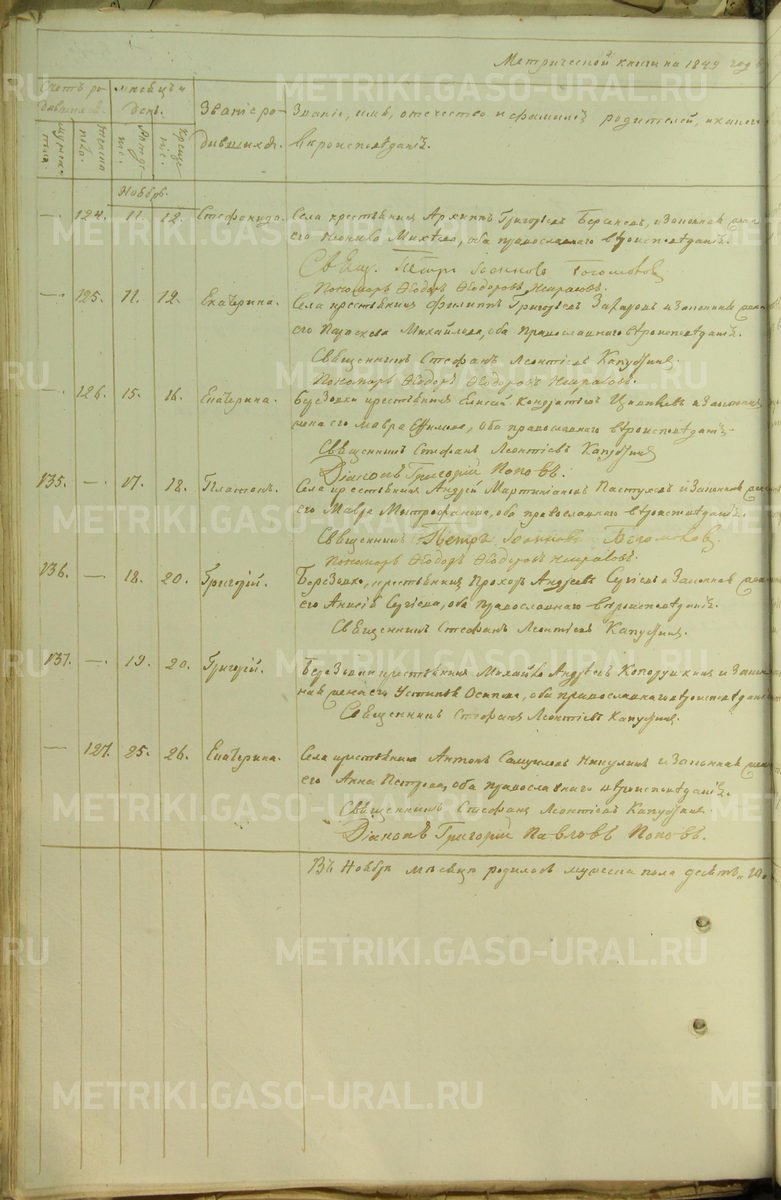 Метрической книги на 1849 годъ
Счетъ ро- мѣсяцъ и
дившихся. День. Званiе ро- Званiе, имя, отечество и фамилiя родителей, и какого
дившихся. вѣроисповѣданiя.
Мужеска пола. Женска пола. Рожде-нiя. Креще-нiя.
Ноябрь.
— 124. 11. 12. Стефанида. Села крестьянинъ Архиппъ Григорьевъ и законная жена
его Михѣева, оба православнаго вѣроисповѣданiя.
Свящ. Петръ
Пономарь Ѳеодоръ Ѳеодоровъ
— 125. 11. 12. Екатерина. Села крестьянинъ Филиппъ Григорьевъ Захаровъ и законная жена
его Параскева Михайлова, оба православнаго вѣроисповѣданiя.
Священникъ Стефанъ Леонтiевъ Капустинъ.
Пономарь Ѳеодоръ Ѳеодоровъ
— 126. 15. 16. Екатерина. Березовки крестьянинъ Елисей Кондратьевъ и законная
жена его Мавра Ефимова, оба православнаго вѣроисповѣданiя.
Священникъ Стефанъ Леонтiевъ Капустинъ
Дiаконъ Григорiй Поповъ.
135. — 17. 18. Платонъ. Села крестьянинъ Андрей Мартинiановъ Пастуховъ и законная жена
его Мавра Митрофанова, оба православнаго вѣроисповѣданiя.
Священникъ Петръ
Пономарь Ѳеодоръ Ѳеодоровъ
136. — 18. 20. Григорiй. Березовки, крестьянинъ Прохоръ Андреевъ и законная жена
его Анисiя Сергiева, оба православнаго вѣроисповѣданiя.
Священникъ Стефанъ Леонтiевъ Капустинъ.
137. — 19. 20. Григорiй. Березовки крестьянинъ Михайло Андреевъ и закон-
ная жена его Устинья Осипова, оба православнаго вѣроисповѣданiя
Священникъ Стефанъ Леонтiевъ Капустинъ.
— 127. 25. 26. Екатерина. Села крестьянинъ Антонъ Самуиловъ Никулинъ и законная жена
его Анна Петрова, оба православнаго вѣроисповѣданiя.
Священникъ Стефанъ Леонтiевъ Капустинъ.
Дiаконъ Григорiй Павловъ Поповъ.
Въ Ноябрѣ мѣсяцѣ родилось мужеска пола десять
METRIKI.GASO-URAL.RU